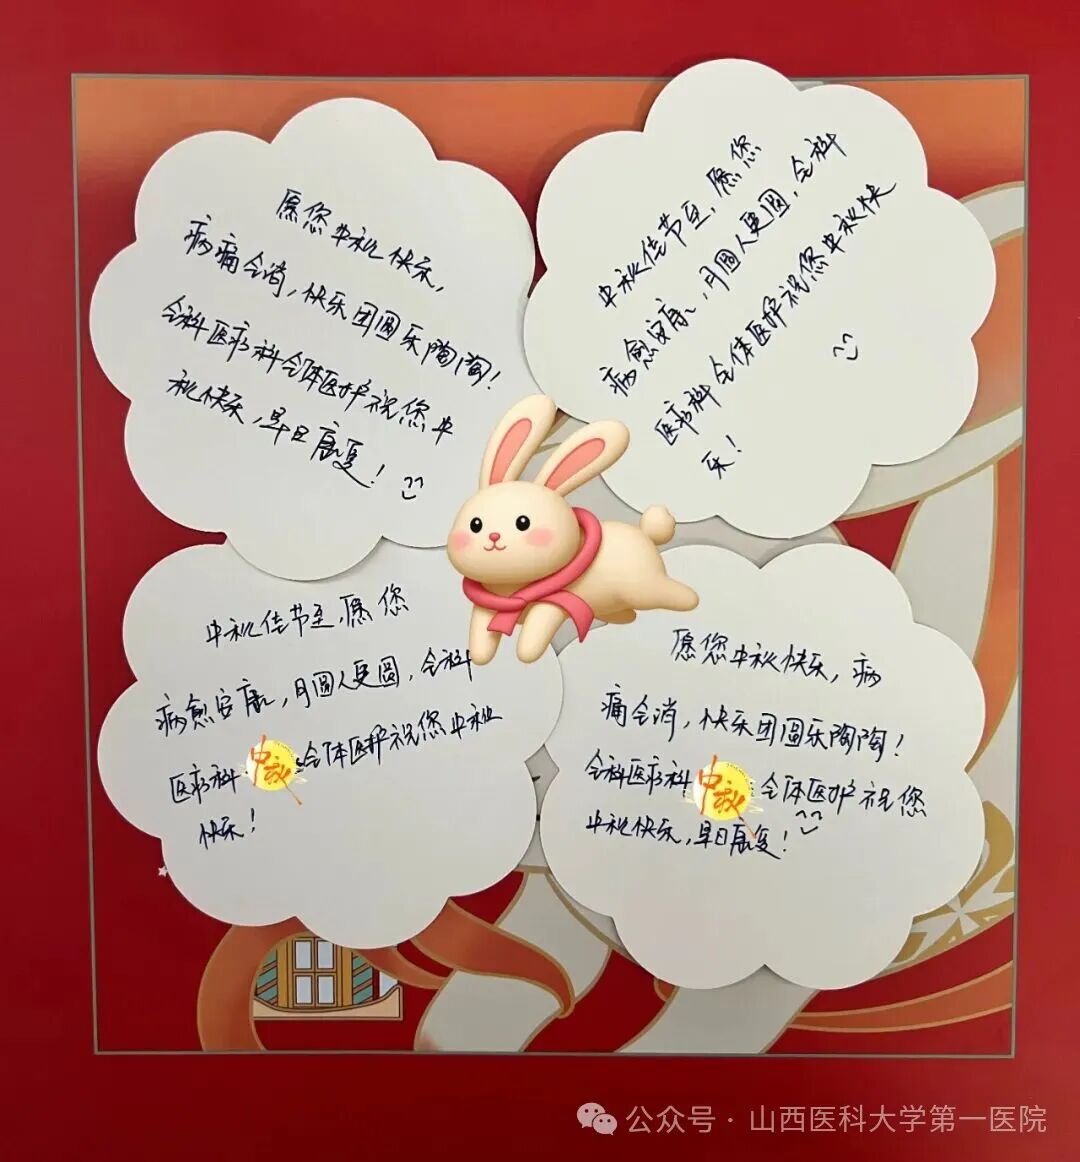 愿您中秋快乐，
病痛全消，快乐团圆乐陶陶！
全科医疗科全体医护祝您中
秋快乐，早日康复！
中秋佳节至，愿您
病愈安康，月圆人更圆，全科
医疗科全体医护祝您中秋快
乐！
中秋佳节至，愿您
病愈安康，月圆人更圆，全科
医疗科 中秋 全体医护祝您中秋
快乐！
愿您中秋快乐，病
痛全消，快乐团圆乐陶陶！
全科医疗科 中秋 全体医护祝您
中秋快乐，早日康复！
公众号·山西医科大学第一医院